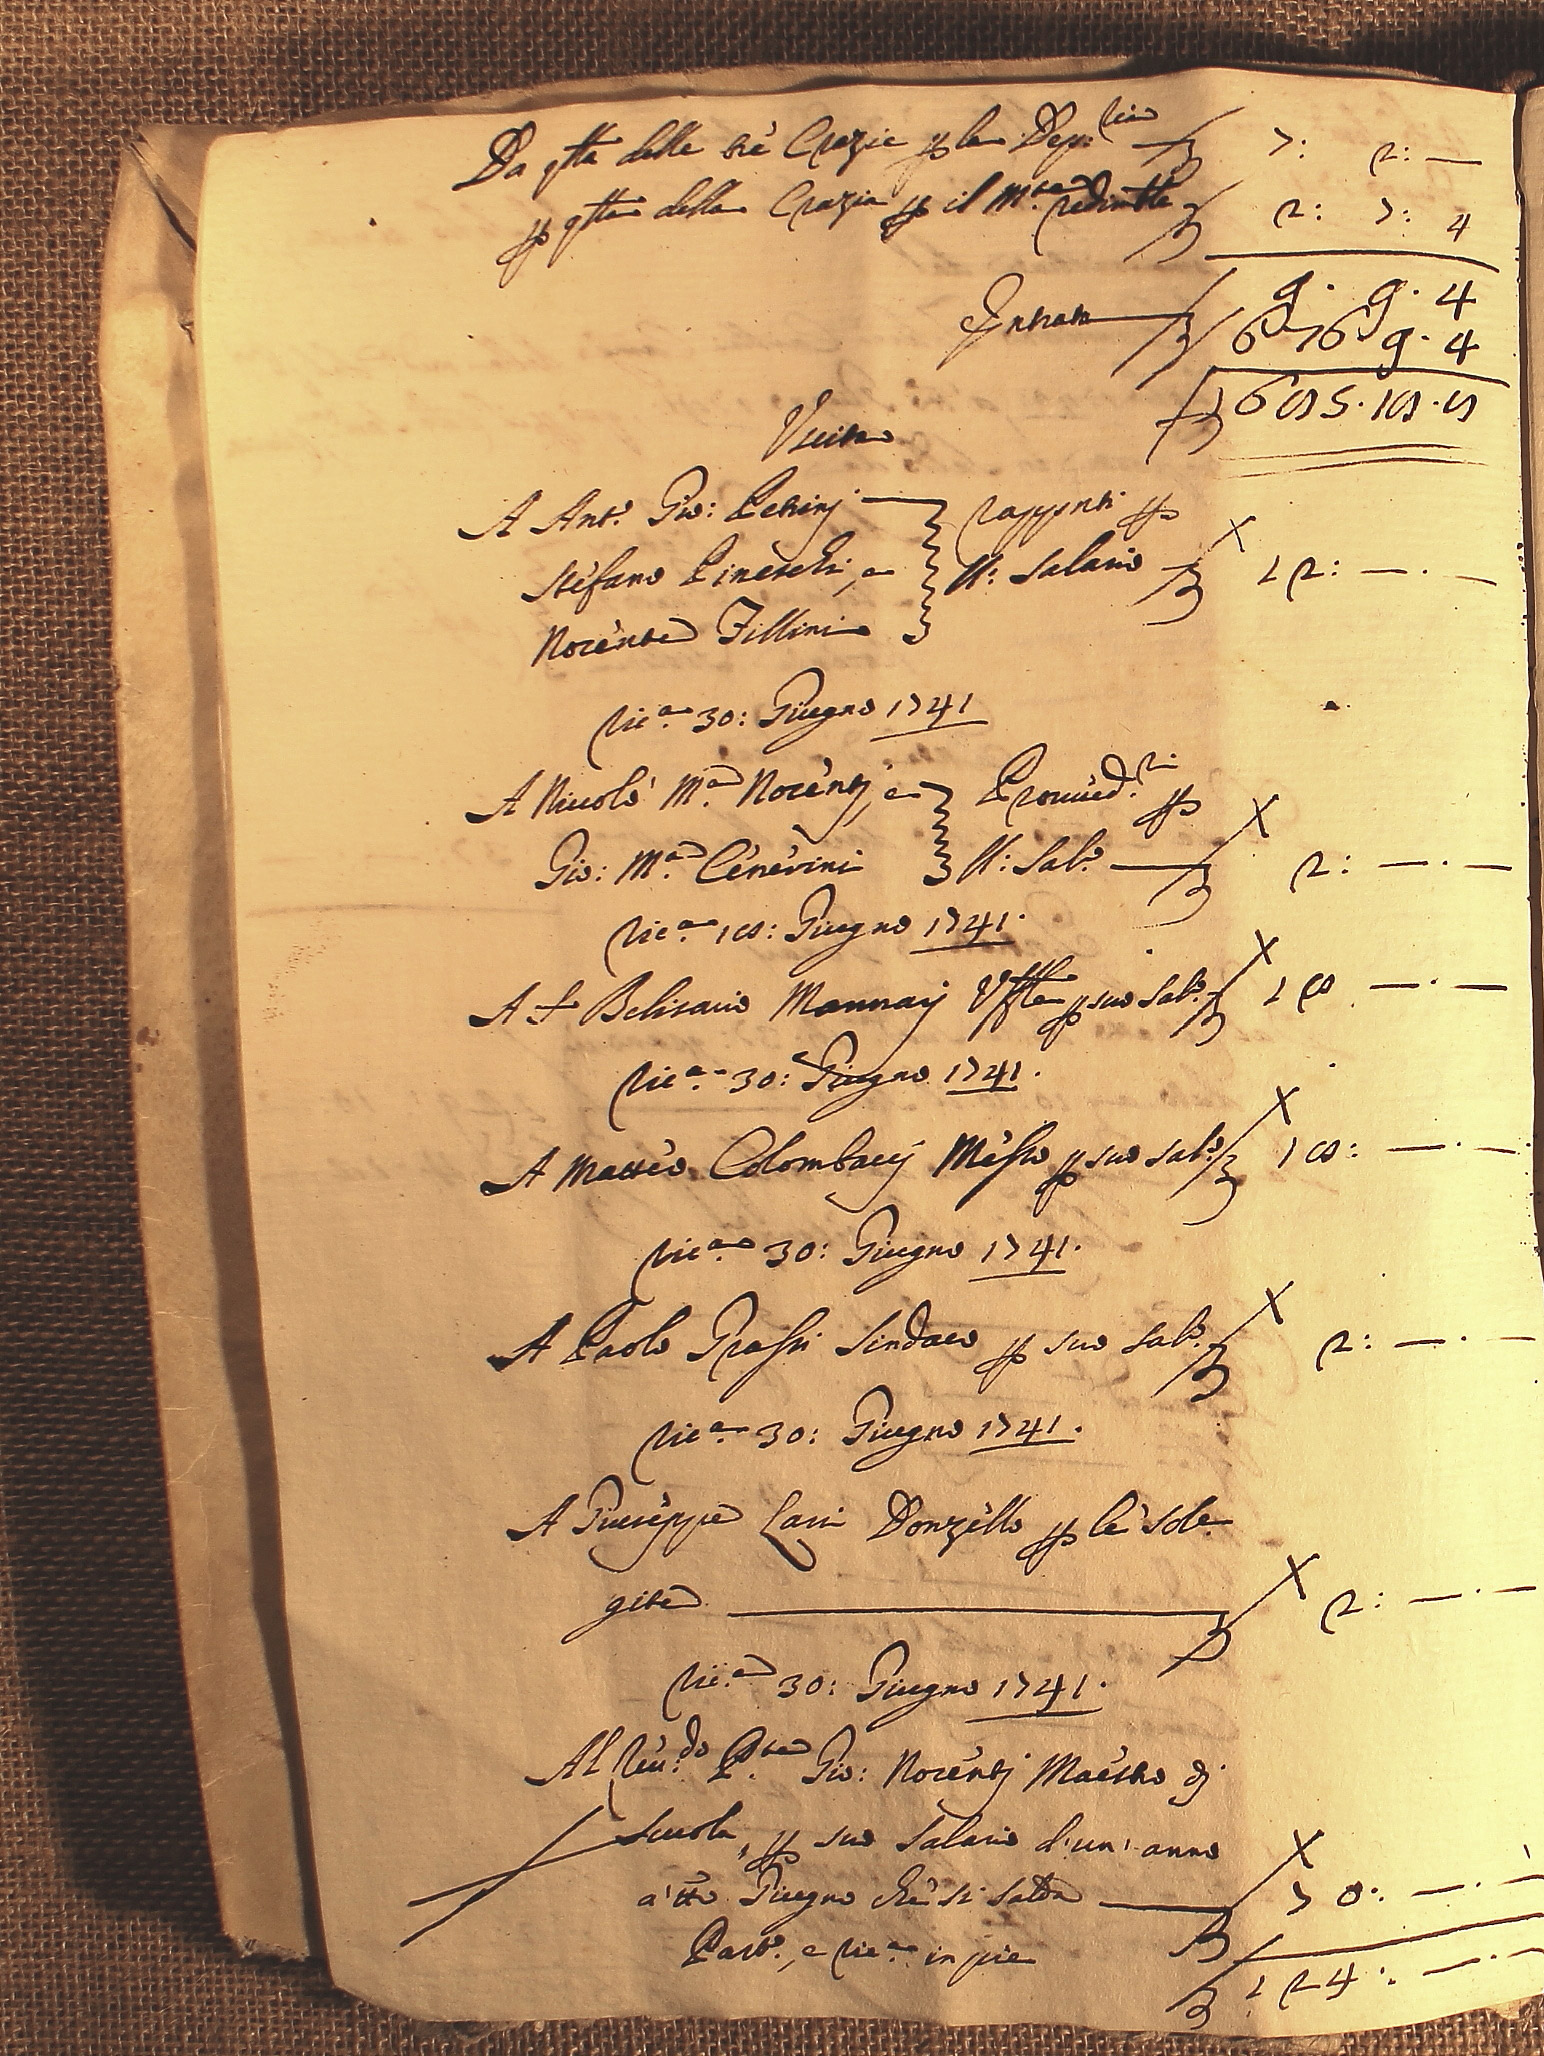 Da q.ta delle trè Crazie p la Dep:
p q.ta della Crazia p il M.te redimtte
7: 2: —
2: 7: 4
9. 9. 4
Entrata
9. 4
Uscita
A Ant.o Gio: Petrinj
Stefano Pineschi, e
Nocente Fillini
rappnti p
il: Salario 12: — . —
Ric.a 30: Giugno 1741
A Niccolò M.a Nocentj, e
Gio: M.a Cenerini
Provved.ri p
il: Sal.o 2: — . —
Ric.a 10: Giugno 1741.
A S Belisario Mannaij p suo Sal.o
Ric.a 30: Giugno 1741.
A Matteo Colombacij Messo p suo sal.o 10: — . —
Ric.a 30: Giugno 1741.
A Paolo Grassi Sindaco p suo Sal.o 2: — . —
Ric.a 30: Giugno 1741.
A Giuseppe Lari Donzello p le sole
gite 2: — . —
Ric.a 30: Giugno 1741.
Al Reu.do P.te Gio: Nocentj Maestro dj
scuola, p suo Salario d'un' anno
a' tto Giugno che si salda 70: — . —
Part.o, e Ric.a in pie
124: — . —